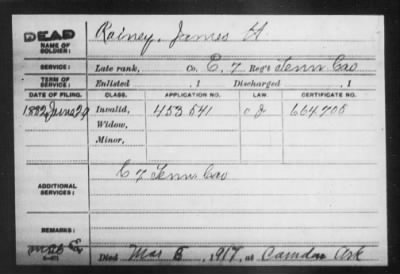 DEAD
NAME OF SOLDIER: Rainey, James H.
SERVICE: Late rank, Co. E, 7 Reg't Tenn Cav
TERM OF SERVICE: Enlisted , 1 Discharged , 1
DATE OF FILING. CLASS. APPLICATION NO. LAW. CERTIFICATE NO.
1882, June 29 Invalid, 453 541 664,705
Widow,
Minor,
ADDITIONAL SERVICES: E 7 Tenn Cav
REMARKS:
Died Mar 5, 1917, at Camden Ark